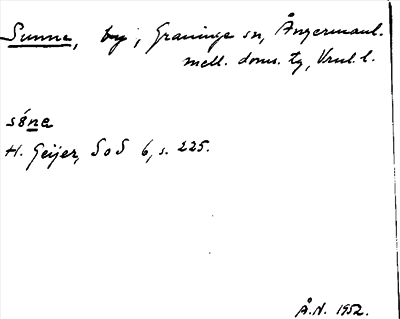 Sunne, by, Graninge sn, Ångermanl.
mell. doms. tg, Vnl. l.
sóne
H. Geijer, SoS 6, s. 225.
Å.N. 1952.